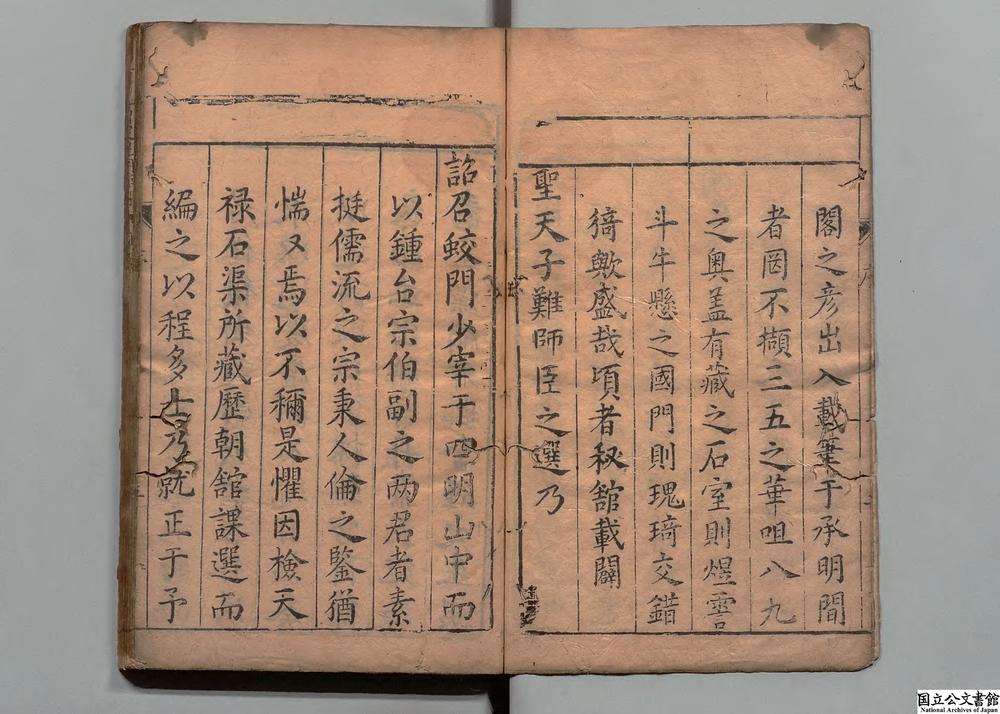 閣之彦出入載筆于承明間
者罔不擷三五之華咀八九
之奥盖有藏之石室則煜霅
斗牛懸之國門則瑰琦交錯
猗歟盛哉頃者秘舘載闢
聖天子難師臣之選乃
詔召蛟門少宰于四明山中而
以鍾台宗伯副之两君者素
挺儒流之宗秉人倫之鑒猶
惴又焉以不穪是懼因檢天
禄石渠所藏歷朝舘課選而
編之以程多士乃就正于予
国立公文書館
National Archives of Japan